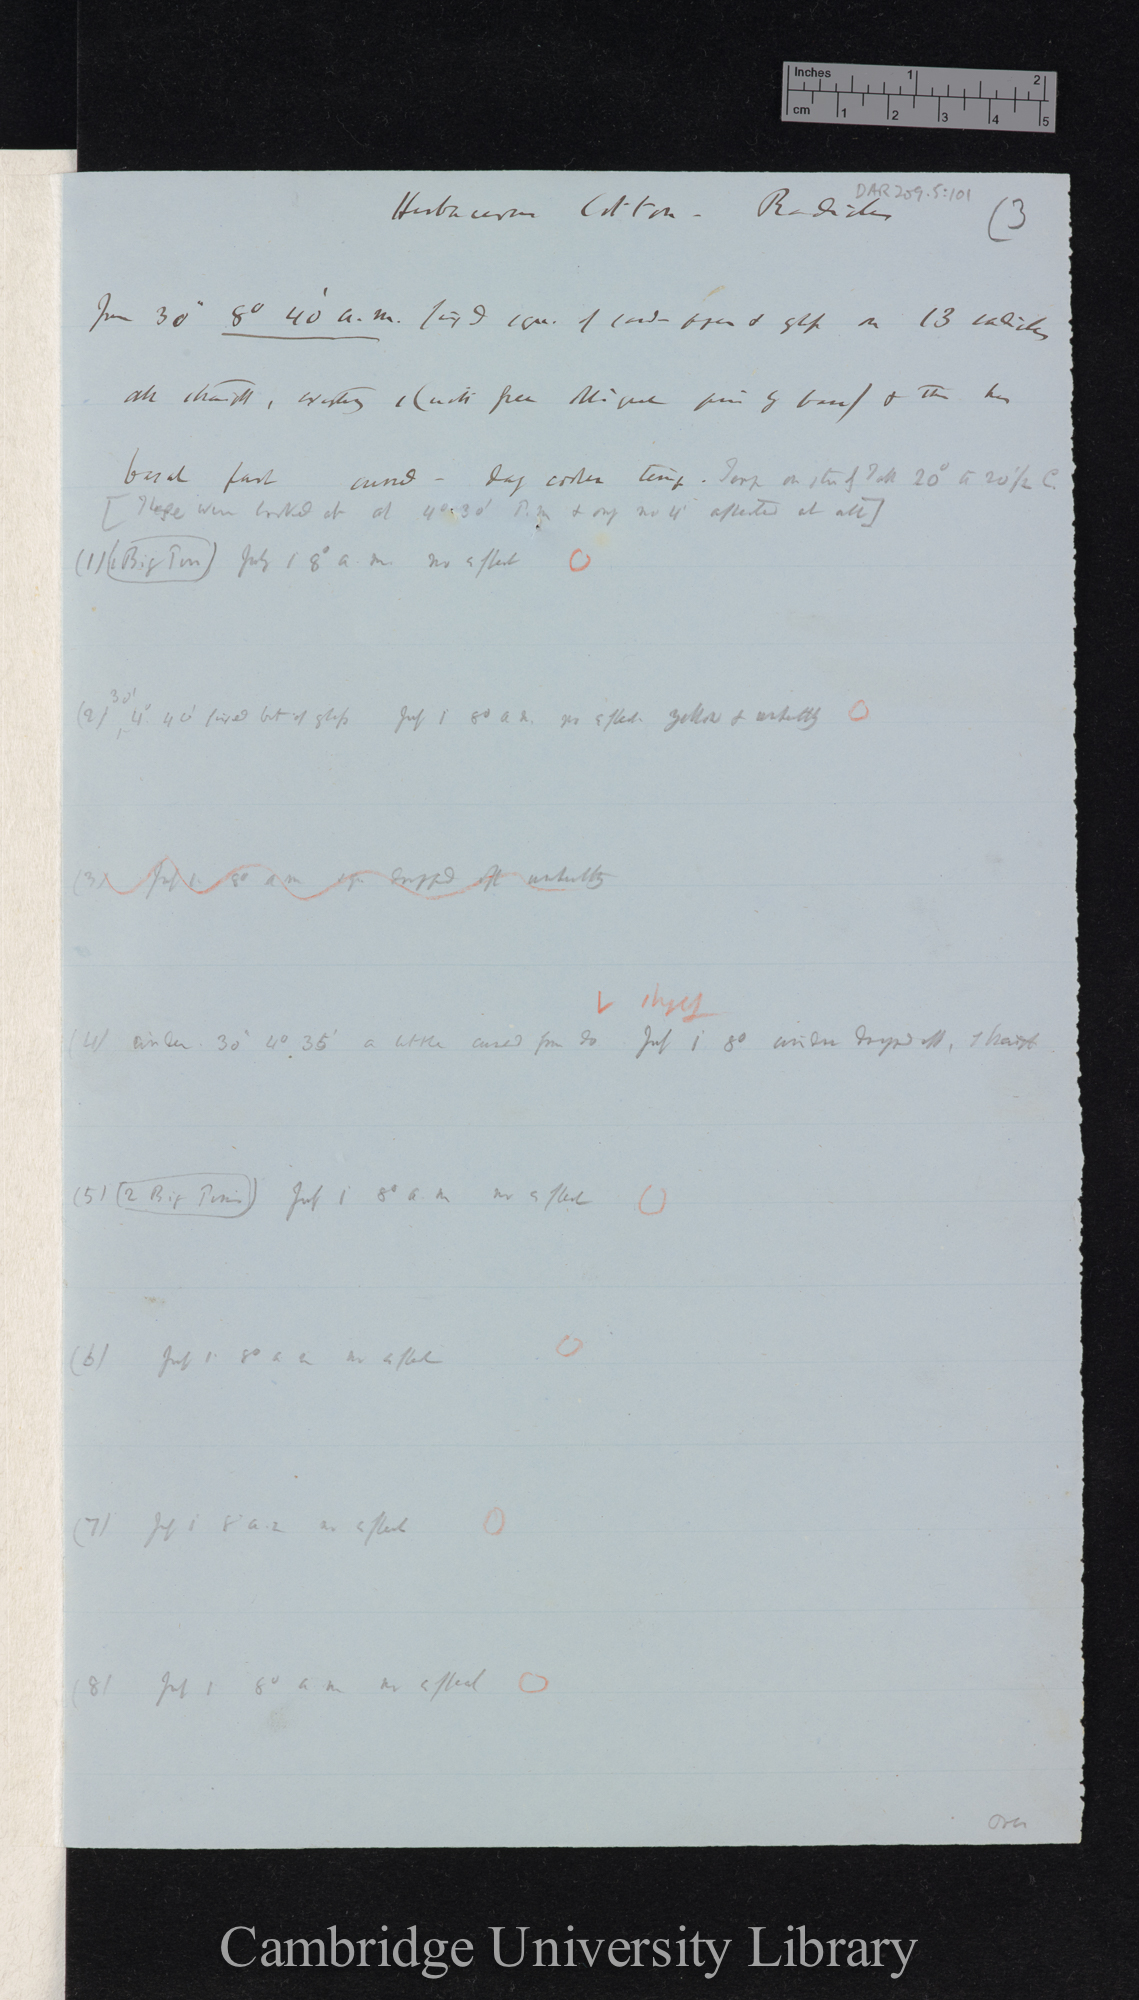 Inches 1 2
cm 1 2 3 4 5
DAR 209.5:101
Herbaceous Cotton - Radicles (3
June 30" 8° 40' a.m. fixed sqrs. of card- paper & glass on 13 radicles
all straight, & then
basal part curved - day cooler temp. Temp on 20° to 20 1/2 C.
[These were looked at at 4° 30' P.m & only no 4 affected at all]
(1) (Big Tin) July 1 8° a.m. no effect O
(2) 30' 4° 40' fixed bit of glass July 1 8° a.m. no effect yellow & unhealthy O
(3) July 1. 8° a m sqr dropped off unhealthy
slight
(4) cinder. 30' 4° 35' a little curved from do July 1 8° cinder dropped off, straight
(5) (2 Big Tins) July 1 8° a.m no effect O
(6) July 1. 8° a m no effect O
(7) July 1 8° a.m no effect O
(8) July 1 8° a m no effect O
Over
Cambridge University Library